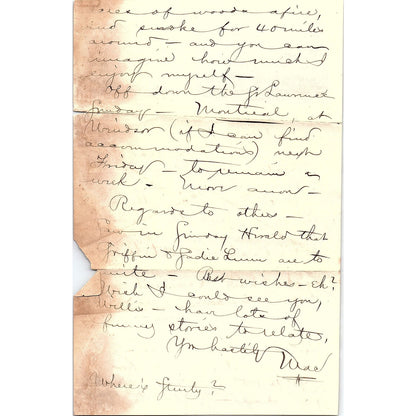 of woods afire,
and smoke for 40 miles
around – and you can
imagine how much I
enjoy myself –
Off down the St Lawrence
Sunday – Montreal, at
Windsor (if I can find
accommodations) next
Friday – to remain a
week. – More anon –
Regards to others –
Saw in Sunday Herald that
Griffin & Sadie are to
unite – Best wishes – Eh?
Wish I could see you,
Willis – have lots of
funny stories to relate,
Yrs hastily Mac
Where's ?